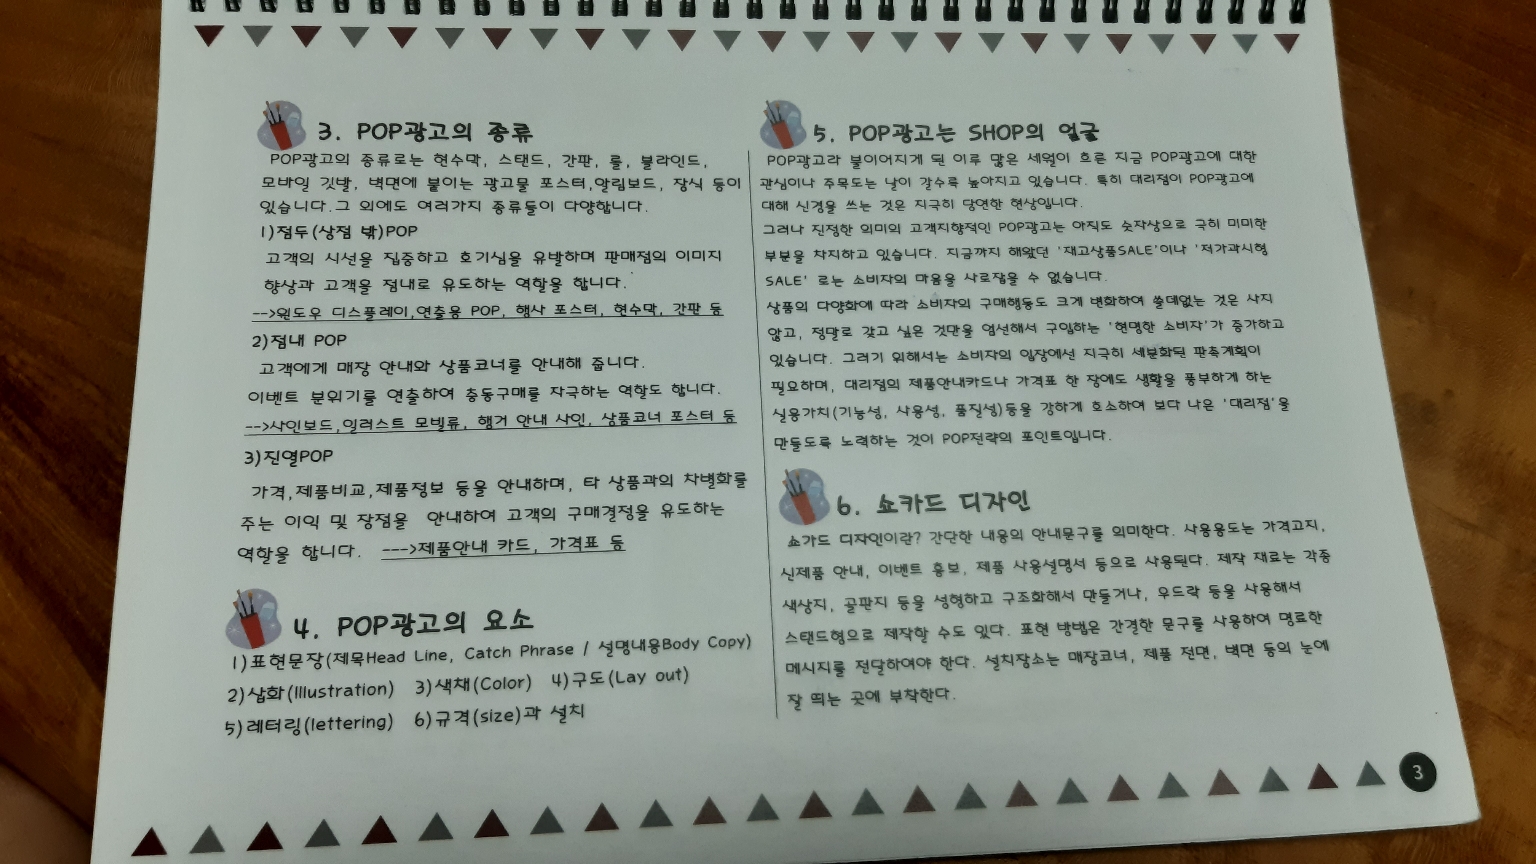 3. POP광고의 종류
POP광고의 종류로는 현수막, 스탠드, 간판, 롤, 블라인드,
모바일 깃발, 벽면에 붙이는 광고물 포스터,알림보드, 장식 등이
있습니다.그 외에도 여러가지 종류들이 다양합니다.
1)점두(상점 밖)POP
고객의 시선을 집중하고 호기심을 유발하며 판매점의 이미지
향상과 고객을 점내로 유도하는 역할을 합니다.
-->윈도우 디스플레이,연출용 POP, 행사 포스터, 현수막, 간판 등
2)점내 POP
고객에게 매장 안내와 상품코너를 안내해 줍니다.
이벤트 분위기를 연출하여 충동구매를 자극하는 역할도 합니다.
-->사인보드,일러스트 모빌류, 행거 안내 사인, 상품코너 포스터 등
3)진열POP
가격,제품비교,제품정보 등을 안내하며, 타 상품과의 차별화를
주는 이익 및 장점을 안내하여 고객의 구매결정을 유도하는
역할을 합니다. --->제품안내 카드, 가격표 등
4. POP광고의 요소
1)표현문장(제목Head Line, Catch Phrase / 설명내용Body Copy)
2)삽화(Illustration) 3)색채(Color) 4)구도(Lay out)
5)레터링(lettering) 6)규격(size)과 설치
5. POP광고는 SHOP의 얼굴
POP광고라 불이어지게 된 이후 많은 세월이 흐른 지금 POP광고에 대한
관심이나 주목도는 날이 갈수록 높아지고 있습니다. 특히 대리점이 POP광고에
대해 신경을 쓰는 것은 지극히 당연한 현상입니다.
그러나 진정한 의미의 고객지향적인 POP광고는 아직도 숫자상으로 극히 미미한
부분을 차지하고 있습니다. 지금까지 해왔던 '재고상품SALE'이나 '저가격시형
SALE' 로는 소비자의 마음을 사로잡을 수 없습니다.
상품의 다양화에 따라 소비자의 구매행동도 크게 변화하여 쓸데없는 것은 사지
않고, 정말로 갖고 싶은 것만을 엄선해서 구입하는 '현명한 소비자'가 증가하고
있습니다. 그러기 위해서는 소비자의 입장에선 지극히 세분화된 판촉계획이
필요하며, 대리점의 제품안내카드나 가격표 한 장에도 생활을 풍부하게 하는
실용가치(기능성, 사용성, 품질성)등을 강하게 호소하여 보다 나은 '대리점'을
만들도록 노력하는 것이 POP전략의 포인트입니다.
6. 쇼카드 디자인
쇼카드 디자인이란? 간단한 내용의 안내문구를 의미한다. 사용용도는 가격고지,
신제품 안내, 이벤트 홍보, 제품 사용설명서 등으로 사용된다. 제작 재료는 각종
색상지, 골판지 등을 성형하고 구조화해서 만들거나, 우드락 등을 사용해서
스탠드형으로 제작할 수도 있다. 표현 방법은 간결한 문구를 사용하여 명료한
메시지를 전달하여야 한다. 설치장소는 매장코너, 제품 전면, 벽면 등의 눈에
잘 띄는 곳에 부착한다.
3